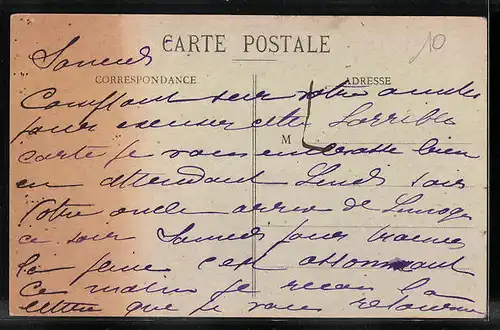 10
Samedi
CARTE POSTALE
CORRESPONDANCE
ADRESSE
Comptant sur votre
pour excuser cette horrible
M
carte je vous embrasse bien
en attendant Lundi soir
Votre oncle arrive de Limoges
ce soir Samedi pour
la c'est assommant
Ce matin je reçois la
lettre que je vous retourne